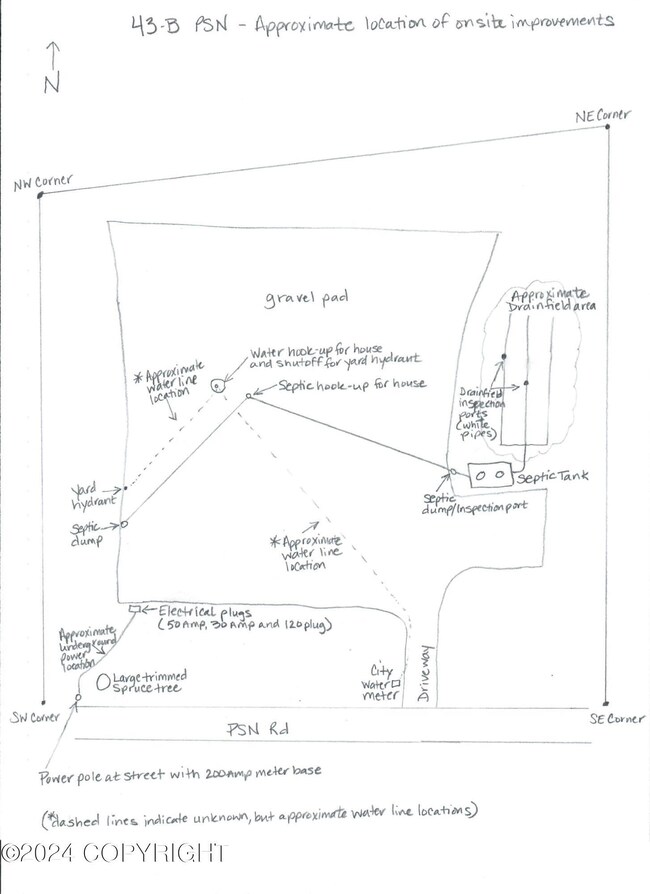 43-B PSN - Approximate location of onsite improvements
N
NE Corner
NW Corner
gravel pad
Approximate
Drainfield area
Water hook-up for house
and shutoff for yard hydrant
*Approximate
water line
location
Septic hook-up for house
Drainfield
inspection
ports
(white
pipes)
Yard
hydrant
Septic Tank
Septic
dump/Inspection port
Septic
dump
*Approximate
water line
location
Electrical plugs
(50 Amp, 30 Amp and 120 plug)
Approximate
underground
power
location
Large trimmed
Spruce tree
City
Water
meter
Driveway
SW Corner
SE Corner
PSN Rd
Power pole at street with 200 Amp meter base
(*dashed lines indicate unknown, but approximate water line locations)
©2024 COPYRIGHT